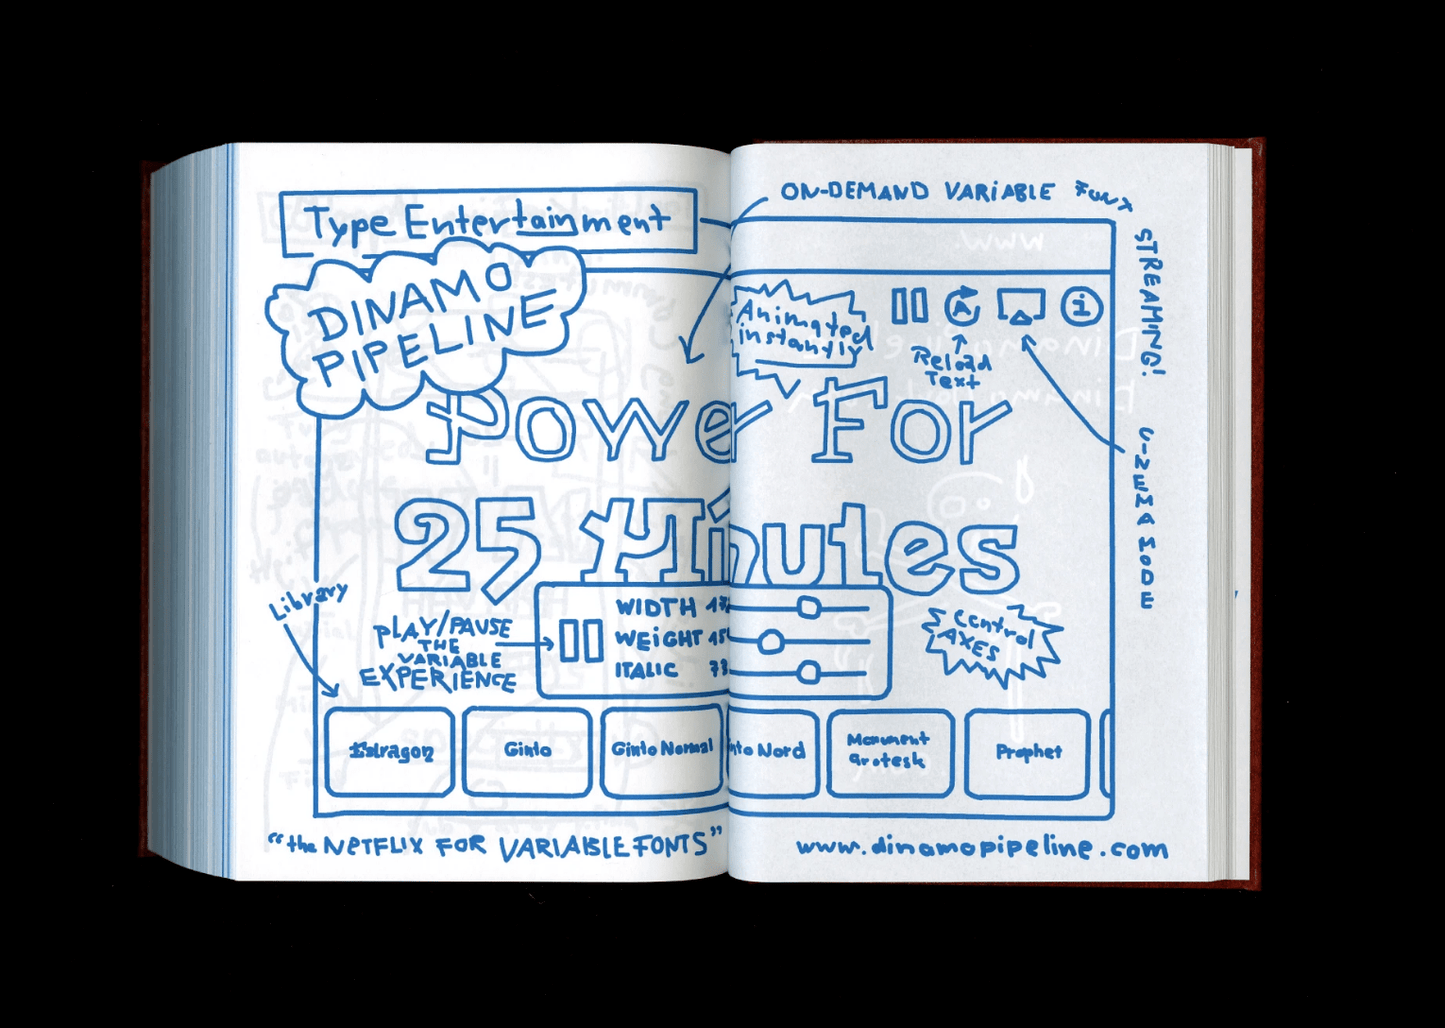 Type Entertainment
ON-DEMAND VARIABLE Fun
STREAMING!
CINEMA MODE
DINAMO
PIPELINE
Animated
instantly
A
i
Reload
Text
Power For
25 Minutes
Library
PLAY/PAUSE
THE
VARIABLE
EXPERIENCE
WIDTH
WEIGHT
ITALIC
Control
AXES
Estragon
Ginto
Ginto Normal
Ginto Nord
Monument
Grotesk
Prophet
"the NETFLIX FOR VARIABLE FONTS"
www.dinamopipeline.com
www.